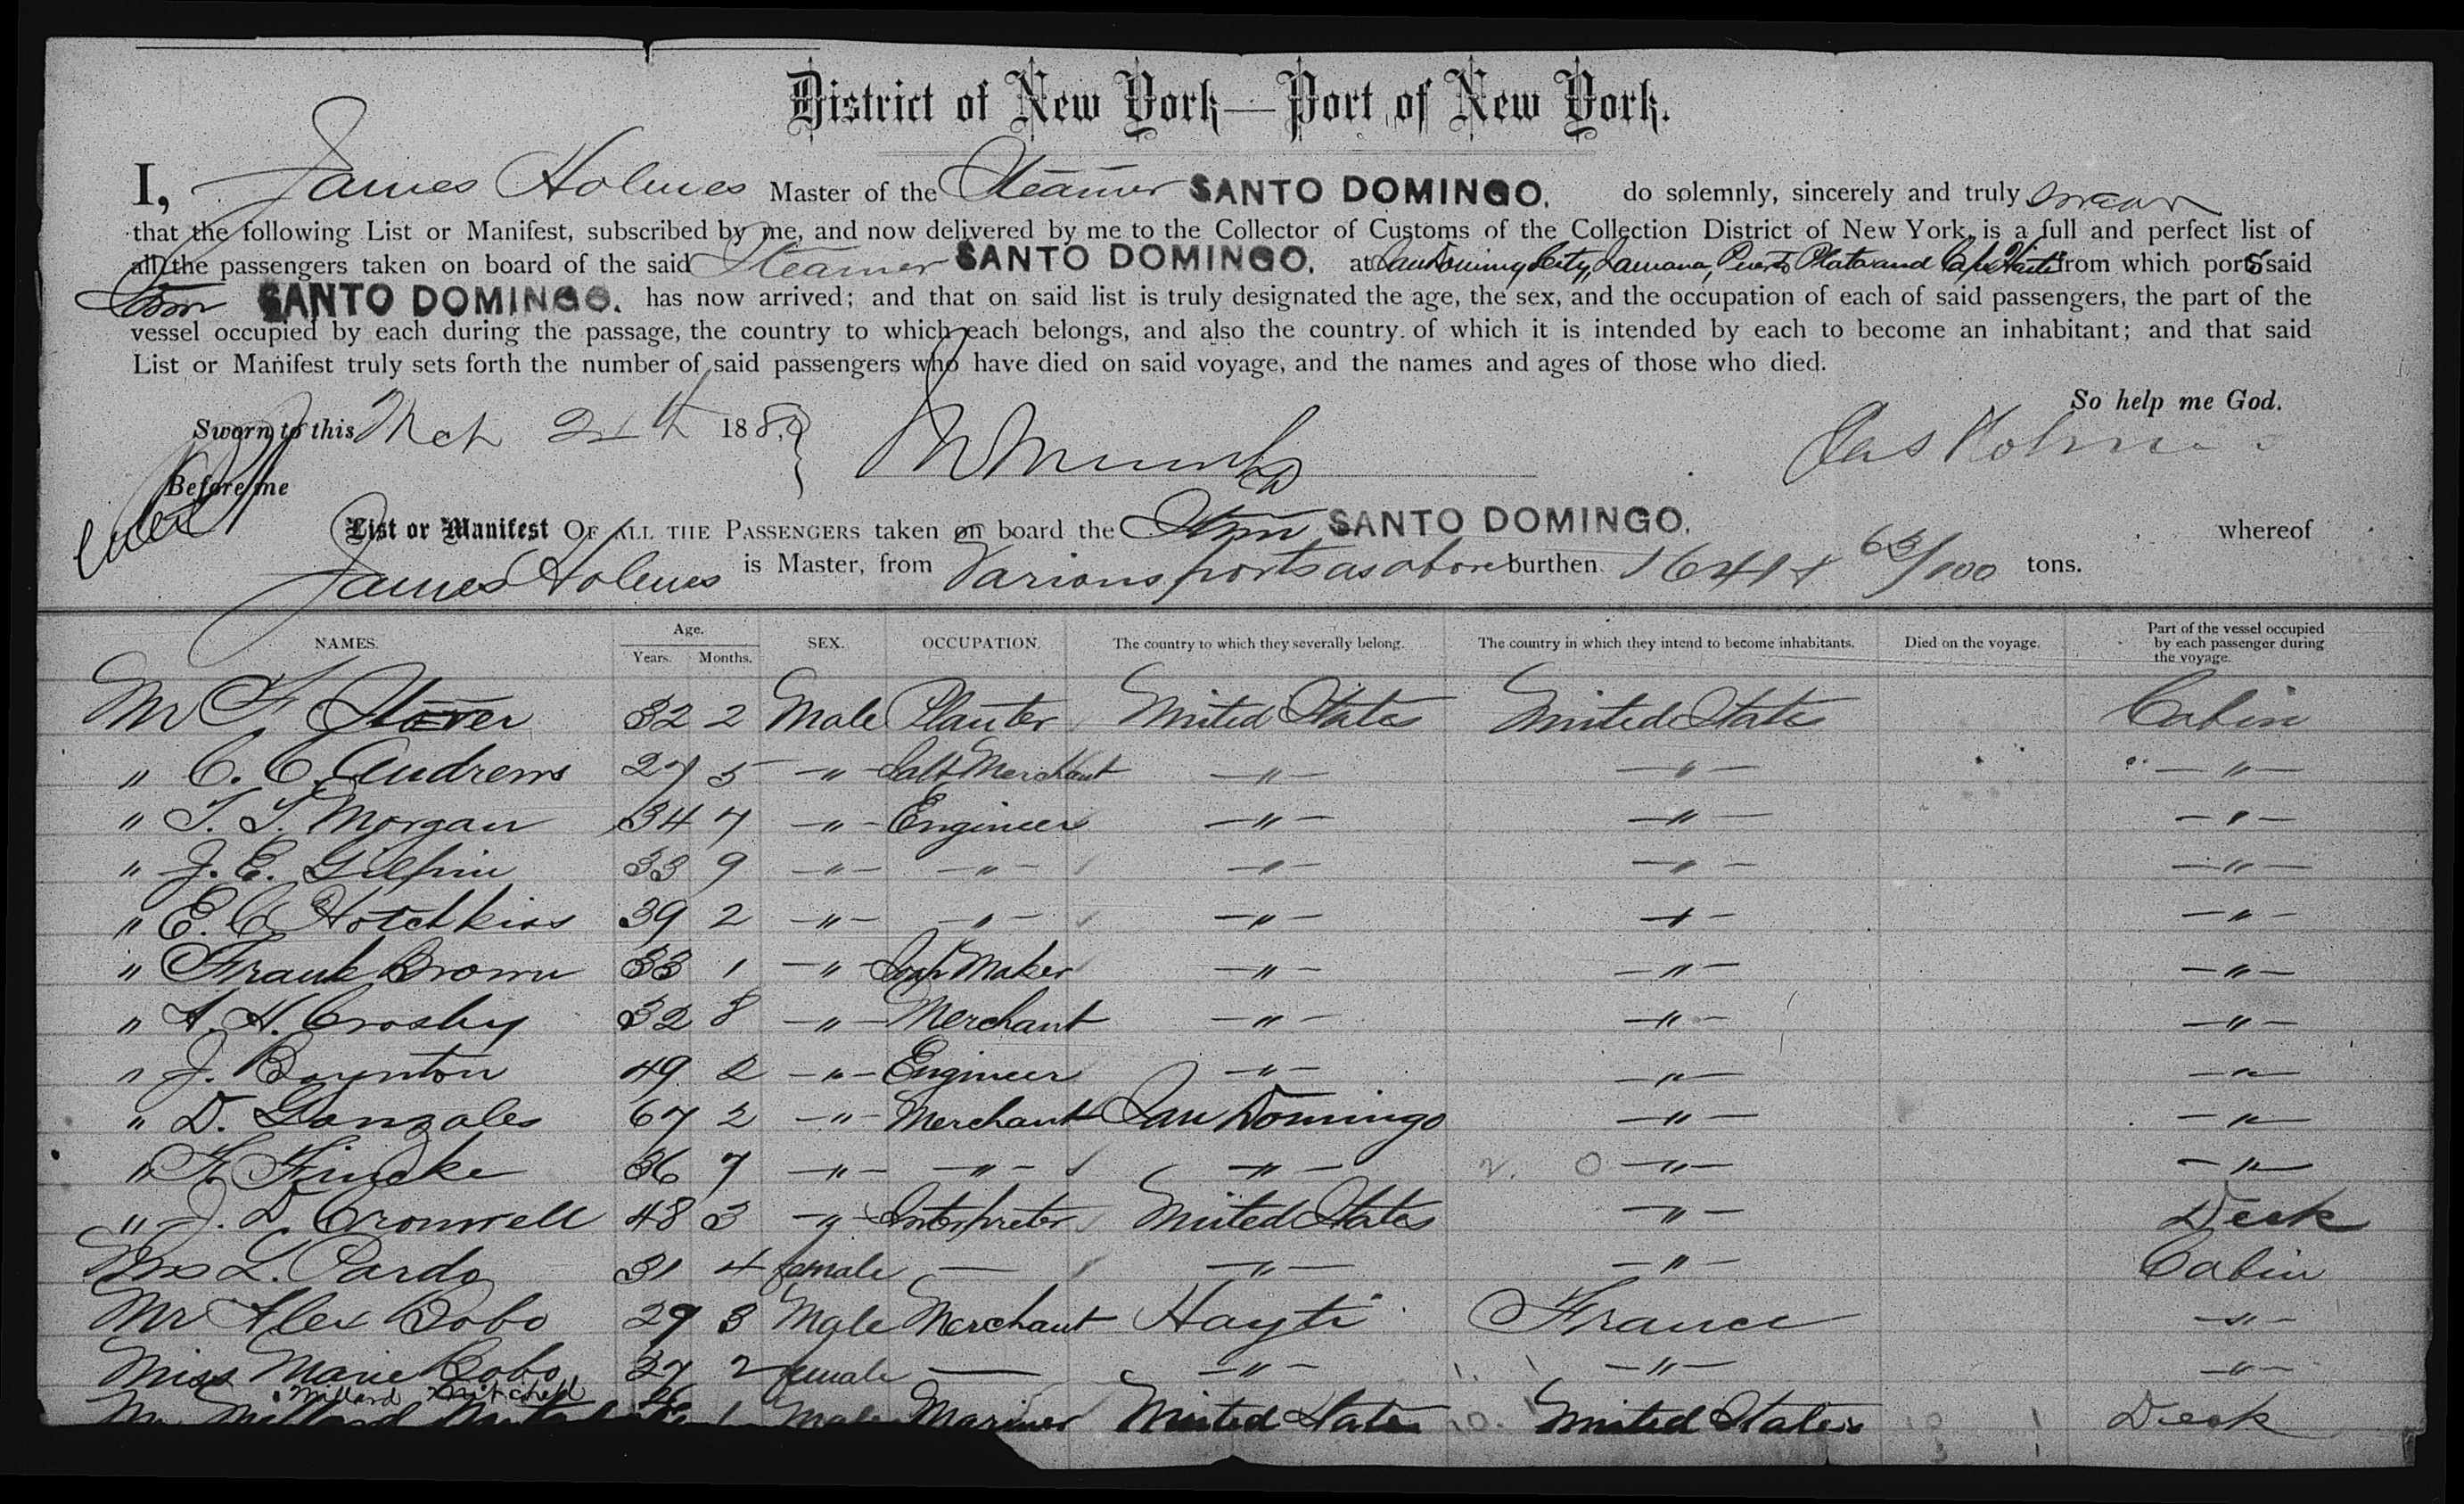 District of New York—Port of New York.
I, James Holmes Master of the Steamer SANTO DOMINGO. do solemnly, sincerely and truly swear
that the following List or Manifest, subscribed by me, and now delivered by me to the Collector of Customs of the Collection District of New York, is a full and perfect list of
all the passengers taken on board of the said Steamer SANTO DOMINGO. at San Domingo City, Samana, Puerto Plata and Cape Haiti from which ports said
Stmr SANTO DOMINGO. has now arrived; and that on said list is truly designated the age, the sex, and the occupation of each of said passengers, the part of the
vessel occupied by each during the passage, the country to which each belongs, and also the country of which it is intended by each to become an inhabitant; and that said
List or Manifest truly sets forth the number of said passengers who have died on said voyage, and the names and ages of those who died.
So help me God.
Sworn to this Mch 24th 188 Jas Holmes
Before me
List or Manifest OF ALL THE PASSENGERS taken on board the Stmr SANTO DOMINGO. whereof
James Holmes is Master, from Various ports as above burthen 1641 + 63/100 tons.
NAMES. Age. Years. Months. SEX. OCCUPATION. The country to which they severally belong. The country in which they intend to become inhabitants. Died on the voyage. Part of the vessel occupied by each passenger during the voyage.
Mr F. Stover 32 2 Male Planter United States United States Cabin
" C. C. Andrews 27 5 " Salt Merchant " " "
" T. T. Morgan 34 7 " Engineer " " "
" J. E. Gilpin 33 9 " " " " "
" E. C. Hotchkiss 39 2 " " " " "
" Frank Brown 33 1 " Soap Maker " " "
" A. H. Crosby 32 8 " Merchant " " "
" J. Boynton 49 2 " Engineer " " "
" D. Gonzales 67 2 " Merchant San Domingo " "
" F. Fincke 36 7 " " " " "
" J. D. Cromwell 48 3 " Interpreter United States " Deck
Mrs L. Pardo 31 4 female — " " Cabin
Mr Alex Bobo 29 3 Male Merchant Hayti France "
Miss Marie Bobo 27 2 female — " " "
Millard Mitchell 26
Mr Millard Mitchell 1 Male Mariner United States United States Deck